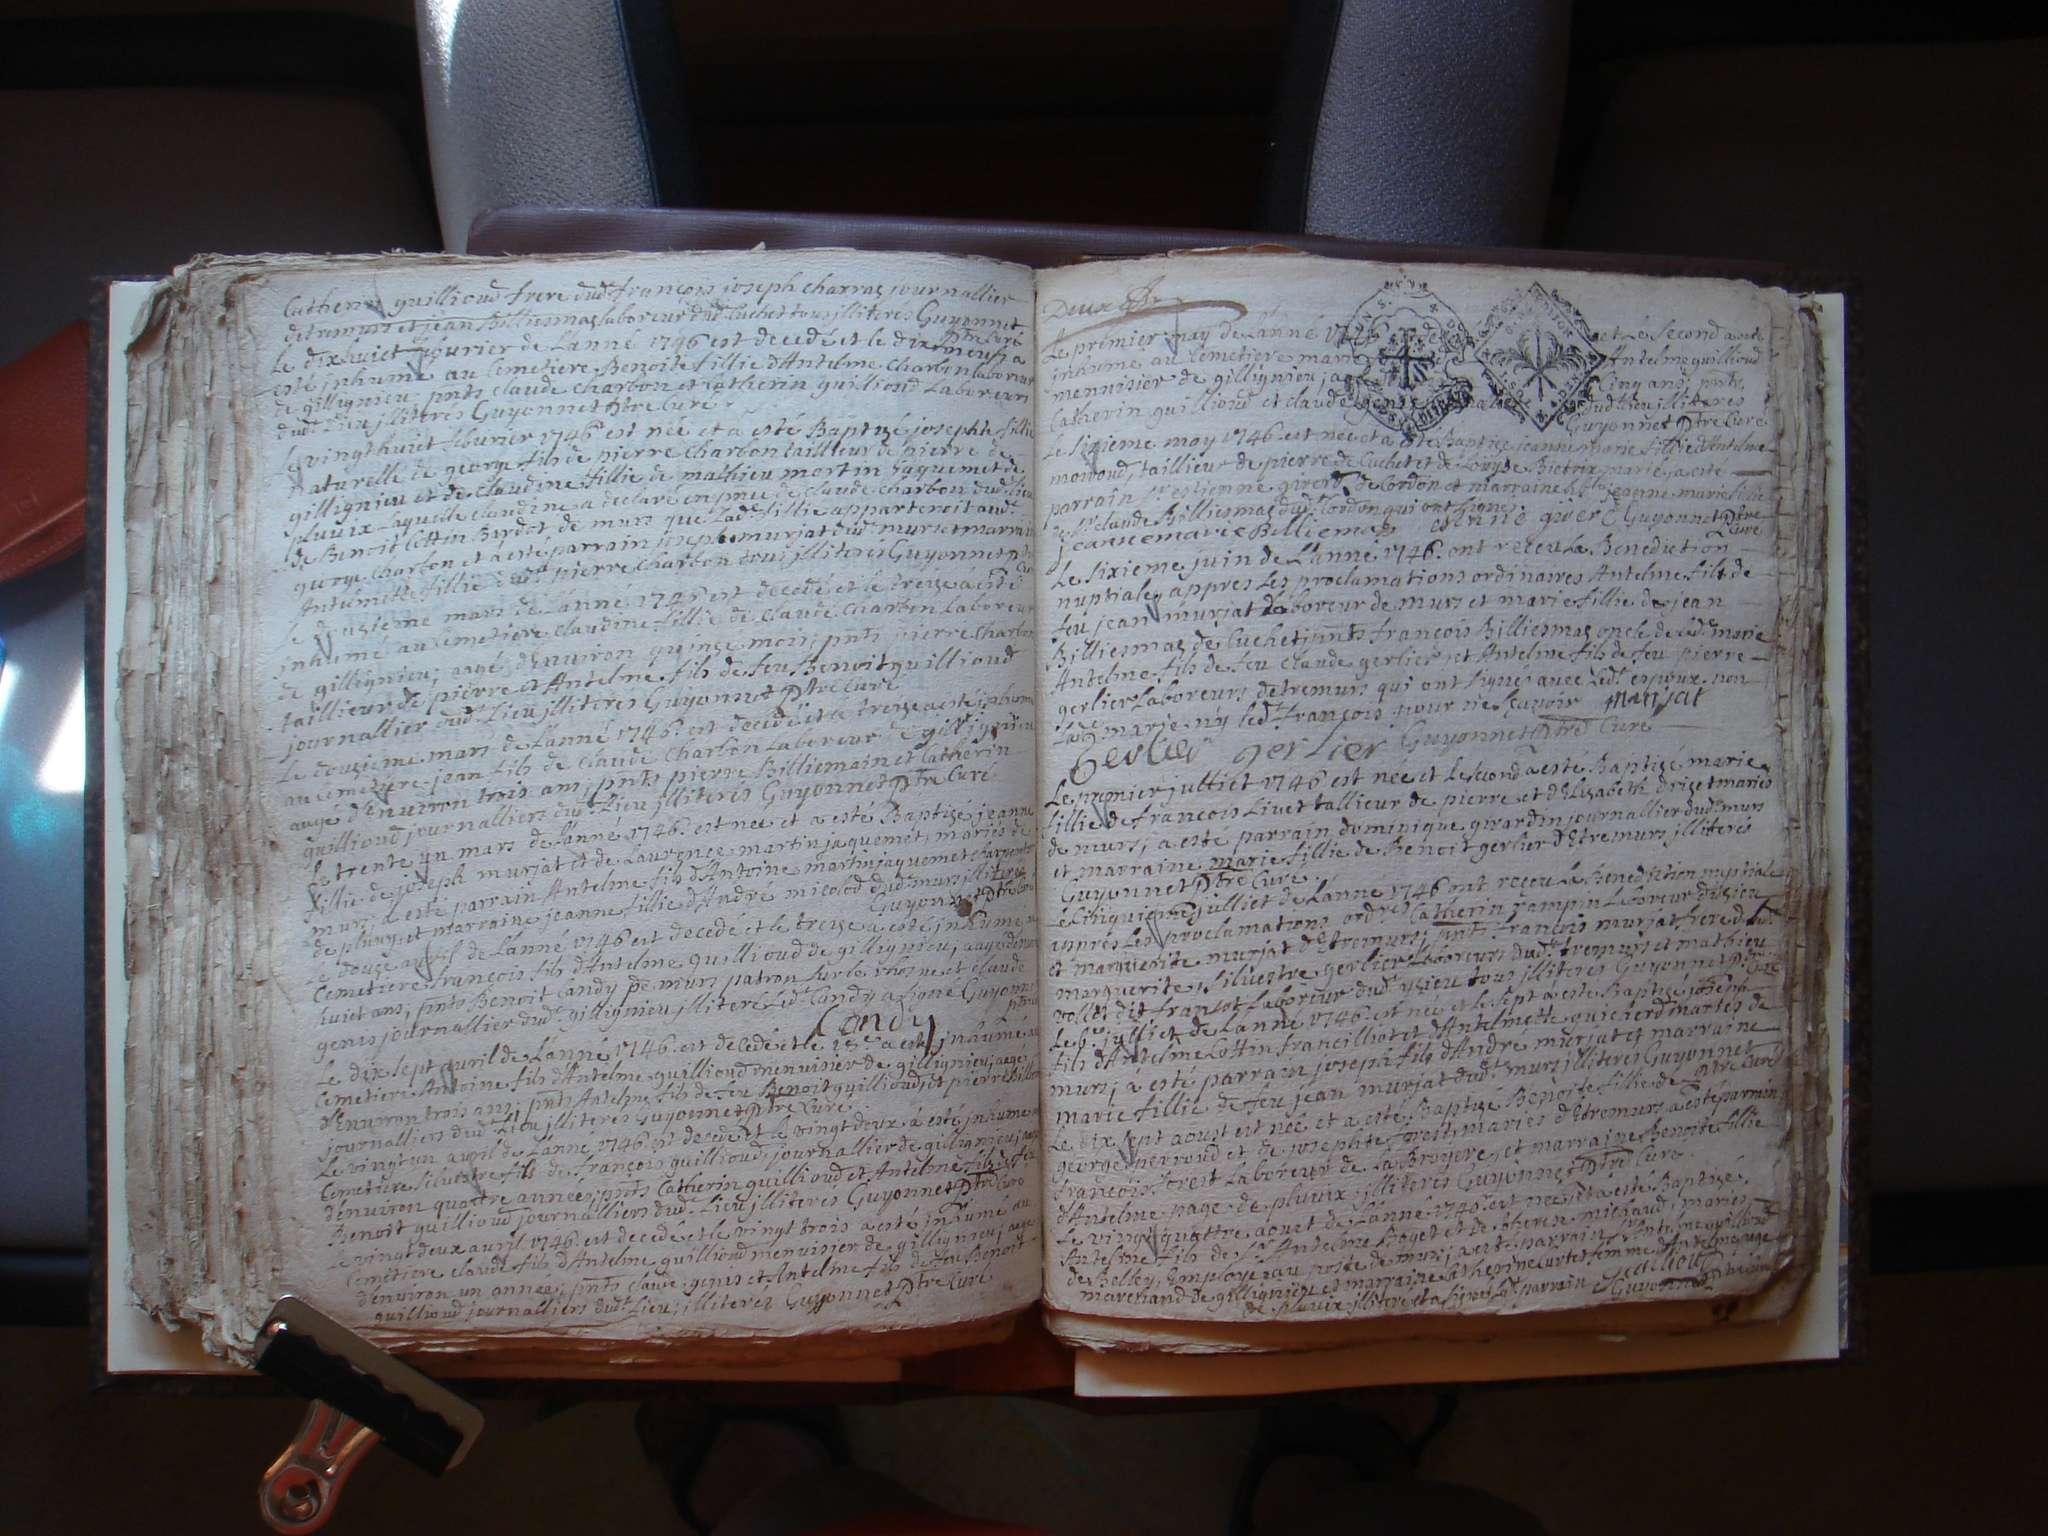 Catherin guillioud frere dud.t françois joseph charras journallier
detremurs et jean Billiemas laboreur dud.t Cuchet tous illiteres Guyonnet
ptre Curé
Le dixhuict feburier de L'anné 1746 est decedé et le dixneuf a
esté inhumé au Cemetiere Benoite fillie d'Antelme Charbin laboreur
de gillignieu pnts claude Charbon et Catherin guillioud Laboreurs
dud.t Lieu illiteres Guyonnet ptre Curé
Le vingthuict feburier 1746 est née et a esté Baptizé josephte fillie
naturelle de george fils de pierre Charbon taillieur de pierre de
gillignieu et de Claudine fillie de mathieu mortin jaquemet de
pluvix Laquelle claudine a declaré en pnce de claude Charbon dud.t Lieu
de Benoit Cottin Bardot de murs que Lad.te fillie appartenoit aud.t
george Charbon et a esté parrain joseph murjat dud.t murs et marraine
Antelmette fillie dud.t pierre Charbon tous illiteres Guyonnet ptre
Le douzieme mars de L'anné 1746 est decedé et le treize a esté
inhumé au Cemetiere Claudine fillie de Claude Charbin Laboreur
de gillignieu, aagé d'Enuiron quinze mois, pnts pierre Charbon
taillieur de pierre et Antelme fils de feu Benoit guillioud
journallier dud.t Lieu illiteres Guyonnet ptre Curé
Le douzieme mars de L'anné 1746 est decedé et le treize a esté inhumé
au Cemetiere jean fils de claude Charbon Laboreur de gillignieu
aagé d'Enuiron trois ans, pnts pierre Billiemain et Catherin
guillioud journalliers dud.t Lieu illiteres Guyonnet ptre Curé
Le trente un mars de L'anné 1746 est née et a esté Baptizé jeanne
fillie de joseph murjat et de Laurence martin jaquemet, mariés de
murs, a esté parrain Antelme fils d'Antoine martin jaquemet charpentier
de pluvy, et marraine jeanne fillie d'André micolod dud.t murs illiteres
Guyonnet ptre Curé
Le douze avril de L'anné 1746 est decedé et le treize a esté inhumé au
Cemetiere françois fils d'Antelme guillioud de gillignieu, aagé d'enuiron
huict ans, pnts Benoit Candy de murs patron sur le rhosne et claude
genis journallier dud.t gillignieu illiteré Led.t Candy a signé Guyonnet
ptre
Candy
Le dix sept avril de L'anné 1746 est decedé et le 18.e a esté inhumé au
Cemetiere Antoine fils d'Antelme guillioud menuisier de gillignieu, aagé
d'Enuiron trois ans, pnts Antelme fils de feu Benoit guillioud, et pierre Billiemain
journalliers dud.t Lieu illiteres Guyonnet ptre Curé
Le vingtun avril de L'anné 1746 est decedé et le vingt deux a esté inhumé au
Cemetiere siluestre fils de françois guillioud, journallier de gillignieu, aagé
d'enuiron quattre années, pnts Catherin guillioud et Antelme fils de feu
Benoit guillioud journalliers dud.t Lieu illiteres Guyonnet ptre Curé
Le vingt deux avril 1746 est decedé et le vingt trois a esté inhumé au
Cemetiere claude fils d'Antelme guillioud menuisier de gillignieu, aagé
d'enuiron un année, pnts claude genis et Antelme fils de feu Benoit
guillioud journalliers dud.t Lieu, illiteres Guyonnet ptre Curé
Deux
Le premier may de L'anné 1746 et Le second a esté
inhumé au Cemetiere Antelme guillioud
mennisier de gillignieu Cinq ans, pnts
Catherin guillioud et claude dud.t Lieu illiteres
Guyonnet ptre Curé
Le sixieme may 1746 est née et a esté Baptizé jeanne marie fillie d'Antelme
taillieur de pierre de Cuchet et de Bietrix mariés, a esté
parrain s.r estienne de Cordon et marraine jeanne marie fillie
de s.r claude Billiemas dud.t Cordon qui ont signés
jeanne marie Billiemas Guyonnet ptre
Curé
Le sixieme juin de L'anné 1746 ont receu La Benediction
nuptiale, appres Les proclamations ordinaires Antelme fils de
feu jean murjat Laboreur de murs et marie fillie de jean
Billiesmas de Cuchet, pnts françois Billiesmas oncle de Lad.te marie
Antelme fils de feu Claude gerlier, et Antelme fils de feu pierre
gerlier Laboreurs detremurs qui ont signés avec Led.t espoux non
Lad.te marie ny led.t françois pour ne sçavoir murjat
Gerlier gerlier Guyonnet ptre Curé
Le premier julliet 1746 est née et le second a esté Baptizé marie
fillie de françois Livet tallieur de pierre et d'Elisabeth mariés
de murs, a esté parrain dominique girardin journallier dud.t murs
et marraine marie fillie de Benoit gerlier d'Etremurs illiterés
Guyonnet ptre Curé
Le Cinquieme julliet de L'anné 1746 ont reçeu La Benediction nuptiale
apprés Les proclamations ord.res Catherin Laboreur
et marguerite murjat d'Etremurs, pnts françois murjat frere de Lad.te
marguerite, siluestre gerlier Laboreurs dud.t tremurs et mathieu
dit franсot Laboreur tous illiteres Guyonnet ptre Curé
Le 6.e julliet de L'anné 1746 est né et le sept a esté Baptizé joseph
fils d'Antelme Cottin francilliot et d'Antelmette mariés de
murs, a esté parrain joseph fils d'André murjat et marraine
marie fillie de feu jean murjat dud.t murs illiteres Guyonnet
ptre Curé
Le dix sept aoust est née et a esté Baptizé Benoite fillie de
george et de josephte forest, mariés d'Etremurs a esté parrain
françois forest Laboreur de La Bruyere, et marraine Benoite fillie
d'Antelme page de pluvix, illiteres Guyonnet ptre Curé
Le vingt quattre aoust de L'anné 1746 est né et a esté Baptizé
Antelme fils de s.r Antelme et de michaud, mariés
de Belley, Employé au poste de murs, a esté parrain s.r Antelme guillioud
marchand de gillignieu et marraine Catherine Curtet femme d'Antelme page
de pluvix illitere et a signé Led.t parrain Guillioud Guyonnet ptre Curé